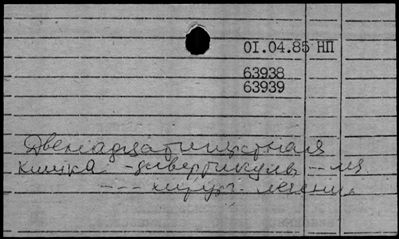 01.04.85 НП
63938
63939
Двенадцатиперстная
кишка - дивертикулы -- из
--- хирург. лечение